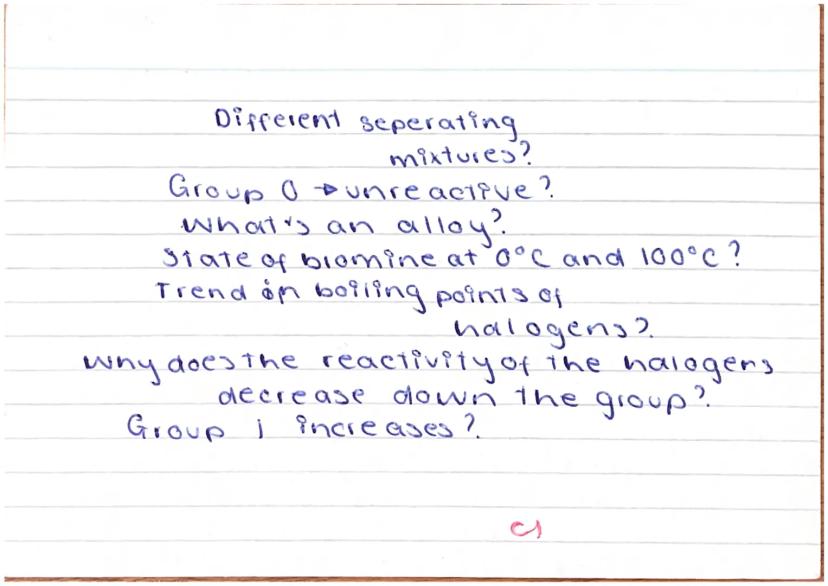 Different seperating
mixtures?
Group 0 → unreactive?
What's an alloy?
State of bromine at 0°C and 100°C?
Trend in boiling points of
halogens?
Why does the reactivity of the halogens
decrease down the group?
Group 1 increases?